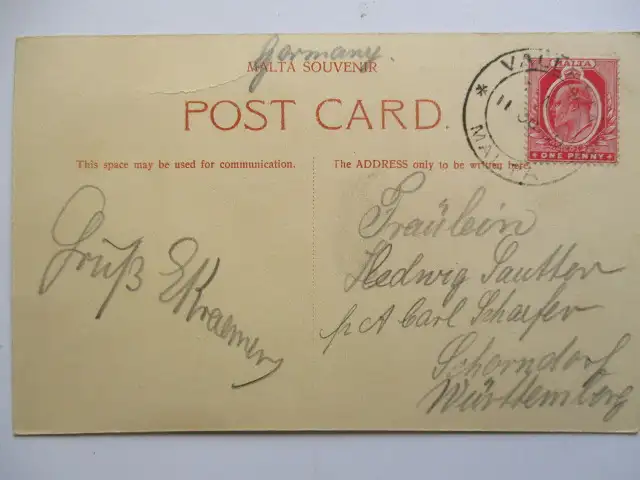 Germany.
MALTA SOUVENIR
POST CARD.
This space may be used for communication.
The ADDRESS only to be written here.
MALTA
ONE PENNY
MALTA
Gruß EKraemer
Fräulein
Hedwig Sautter
p A Carl Schäfer
Schorndorf
Württemberg